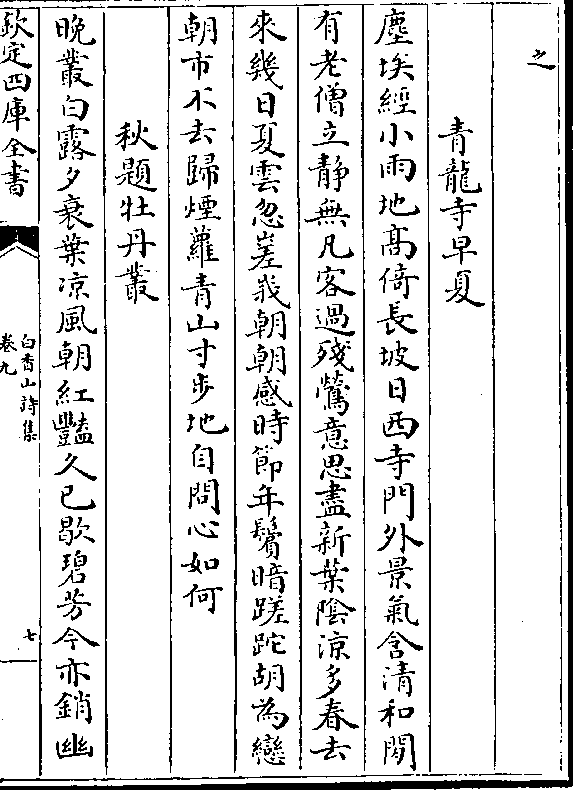 之
青龍寺早夏
塵埃經小雨地髙倚長坡日西寺門外景氣含清和閑
有老僧立静無凡客過殘鶯意思盡新葉陰凉多春去
來幾日夏雲忽嵳峩朝朝感時節年鬢暗蹉跎胡為戀
朝市不去歸煙蘿青山寸步地自問心如何
秋題牡丹叢
晚叢白露夕衰葉凉風朝紅豔久已歇碧芳今亦銷幽
欽定四庫全書
白香山詩集
卷九
七